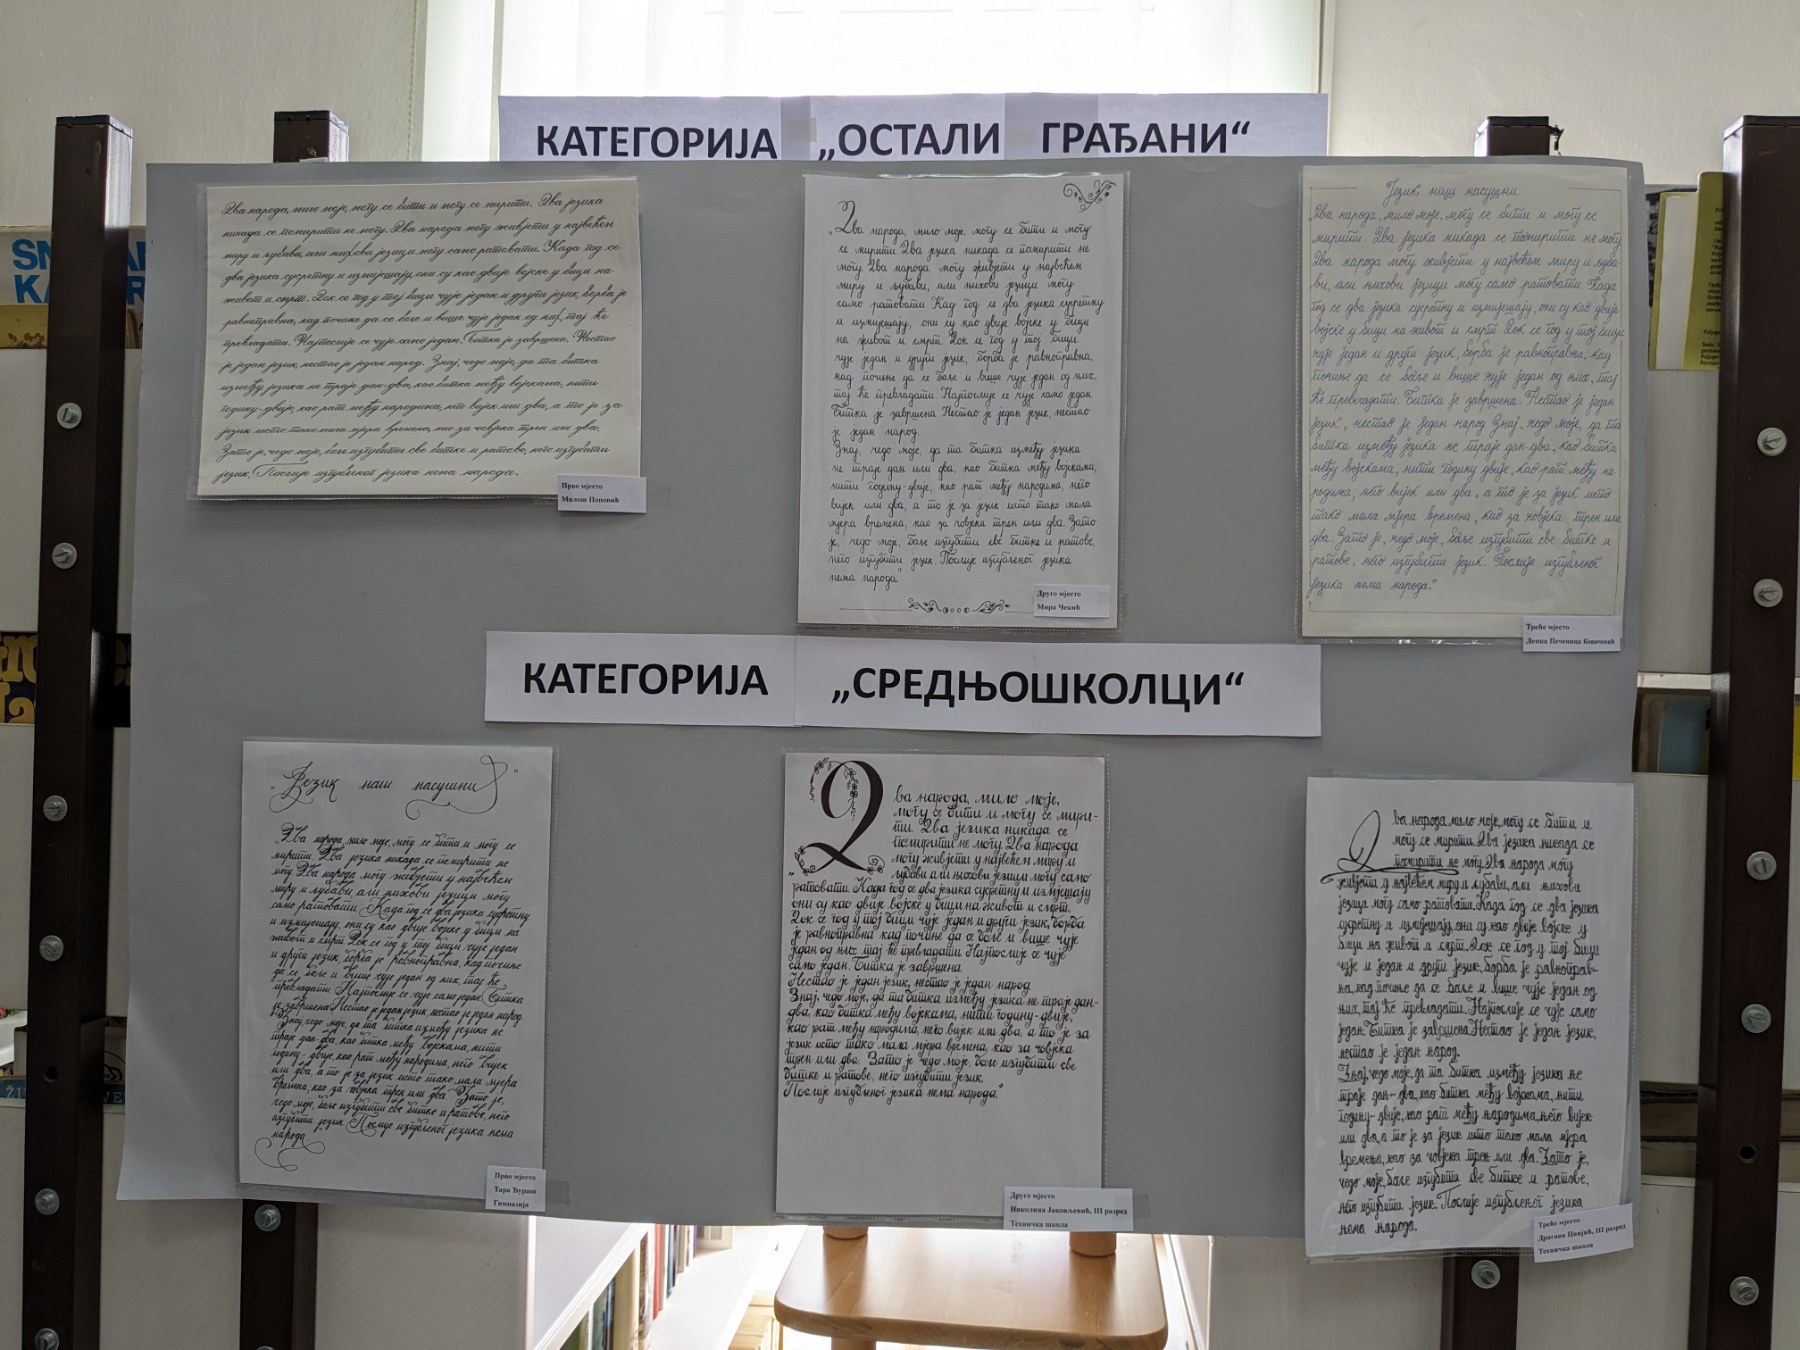 КАТЕГОРИЈА „ОСТАЛИ ГРАЂАНИ“
Два народа, мило моје, могу се бити и могу се мирити. Два језика
никада се помирити не могу. Два народа могу живјети у највећем
миру и љубави, али њихови језици могу само ратовати. Када год се
два језика сусретну и измијешају, они су као двије војске у бици на
живот и смрт. Док се год у тој бици чује један и други језик, борба је
равноправна, кад почиње да се боље и више чује један од њих, тај ће
превладати. Најпослије се чује само један. Битка је завршена. Нестао
је један језик, нестао је један народ. Знај, чедо моје, да та битка
између језика не траје дан-два, као битка међу војскама, нити
годину-двије, као рат међу народима, него вијек или два, а то је за
језик исто тако мала мјера времена, као за човјека трен или два.
Зато је, чедо моје, боље изгубити све битке и ратове, него изгубити
језик. Послије изгубљеног језика нема народа.
Прво мјесто
Милош Поповић
„Два народа, мило моје, могу се бити и могу
се мирити Два језика никада се помирити не
могу Два народа могу живјети у највећем
миру и љубави, али њихови језици могу
само ратовати Кад год се два језика сусретну
и измијешају, они су као двије војске у бици
на живот и смрт. Док се год у тој бици
чује један и други језик, борба је равноправна,
кад почиње да се боље и више чује један од њих,
тај ће превладати Најпослије се чује само један.
Битка је завршена. Нестао је један језик, нестао
је један народ.
Знај, чедо моје, да та битка између језика
не траје дан или два, као битка међу војскама,
нити годину-двије, као рат међу народима, него
вијек или два, а то је за језик исто тако мала
мјера времена, као за човјека трен или два. Зато
је, чедо моје, боље изгубити све битке и ратове,
него изгубити језик. Послије изгубљеног језика
нема народа“
Друго мјесто
Мира Чекић
Језик наш насушни
„Два народа, мило моје, могу се бити и могу се
мирити. Два језика никада се помирити не могу
Два народа могу живјети у највећем миру и љуба
ви, али њихови језици могу само ратовати. Када
год се два језика сусретну и измијешају, они су као двије
војске у бици на живот и смрт. Док се год у тој бици
чује један и други језик, борба је равноправна, кад
почиње да се боље и више чује један од њих, тај
ће превладати. Битка је завршена. Нестао је један
језик, нестао је један народ Знај, чедо моје, да та
битка између језика не траје дан-два, као битка
међу војскама, нити годину двије, као рат међу на-
родима, него вијек или два, а то је за језик исто
тако мала мјера времена, као за човјека трен или
два. Зато је, чедо моје, боље изгубити све битке и
ратове, него изгубити језик. Послије изгубљеног
језика нема народа.“
Треће мјесто
КАТЕГОРИЈА „СРЕДЊОШКОЛЦИ“
„Језик наш насушни“
„Два народа, мило моје, могу се бити и могу се
мирити Два језика никада се помирити не
могу Два народа могу живјети у највећем
миру и љубави, али њихови језици могу
само ратовати. Када год се два језика сусретну
и измијешају, они су као двије војске у бици на
живот и смрт. Док се год у тој бици чује један
и други језик, борба је равноправна, кад почиње
да се боље и више чује један од њих, тај ће
превладати Најпослије се чује само један Битка
је завршена Нестао је један језик, нестао је један народ
Знај, чедо моје, да та битка између језика не
траје дан-два, као битка међу војскама, нити
годину-двије, као рат међу народима, него вијек
или два, а то је за језик исто тако мала мјера
времена, као за човјека трен или два Зато је,
чедо моје, боље изгубити све битке и ратове, него
изгубити језик Послије изгубљеног језика нема
народа
Прво мјесто
Тара Ђураш
Гимназија
„Два народа, мило моје,
могу се бити и могу се мири-
ти. Два језика никада се
помирити не могу. Два народа
могу живјети у највећем миру и
љубави али њихови језици могу само
ратовати. Када год се два језика сусретну и измијешају
они су као двије војске у бици на живот и смрт.
Док се год у тој бици чује један и други језик, борба
је равноправна кад почиње да се боље и више чује
један од њих тај ће превладати Најпослије се чује
само један. Битка је завршена.
Нестао је један језик, нестао је један народ
Знај, чедо моје, да та битка између језика не траје дан-
два, као битка међу војскама, нити годину-двије,
као рат међу народима, него вијек или два, а то је за
језик исто тако мала мјера времена, као за човјека
трен или два. Зато је чедо моје, боље изгубити све
битке и ратове, него изгубити језик.
Послије изгубљеног језика нема народа.“
Друго мјесто
Николина Јаковљевић, III разред
Техничка школа
Два народа, мило моје, могу се бити и
могу се мирити. Два језика никада се
помирити не могу. Два народа могу
живјети у највећем миру и љубави, али њихови
језици могу само ратовати. Када год се два језика
сусретну и измијешају, они су као двије војске у
бици на живот и смрт. Док се год у тој бици
чује и један и други језик, борба је равноправ-
на, кад почиње да се боље и више чује један од
њих, тај ће превладати. Најпослије се чује само
један. Битка је завршена. Нестао је један језик,
нестао је један народ.
Знај, чедо моје, да та битка између језика не
траје дан-два, као битка међу војскама, нити
годину-двије, као рат међу народима, него вијек
или два, а то је за језик исто тако мала мјера
времена, као за човјека трен или два. Зато је,
чедо моје, боље изгубити све битке и ратове,
него изгубити језик. Послије изгубљеног језика
нема народа.
Треће мјесто
Драгана Цвијић, III разред
Техничка школа